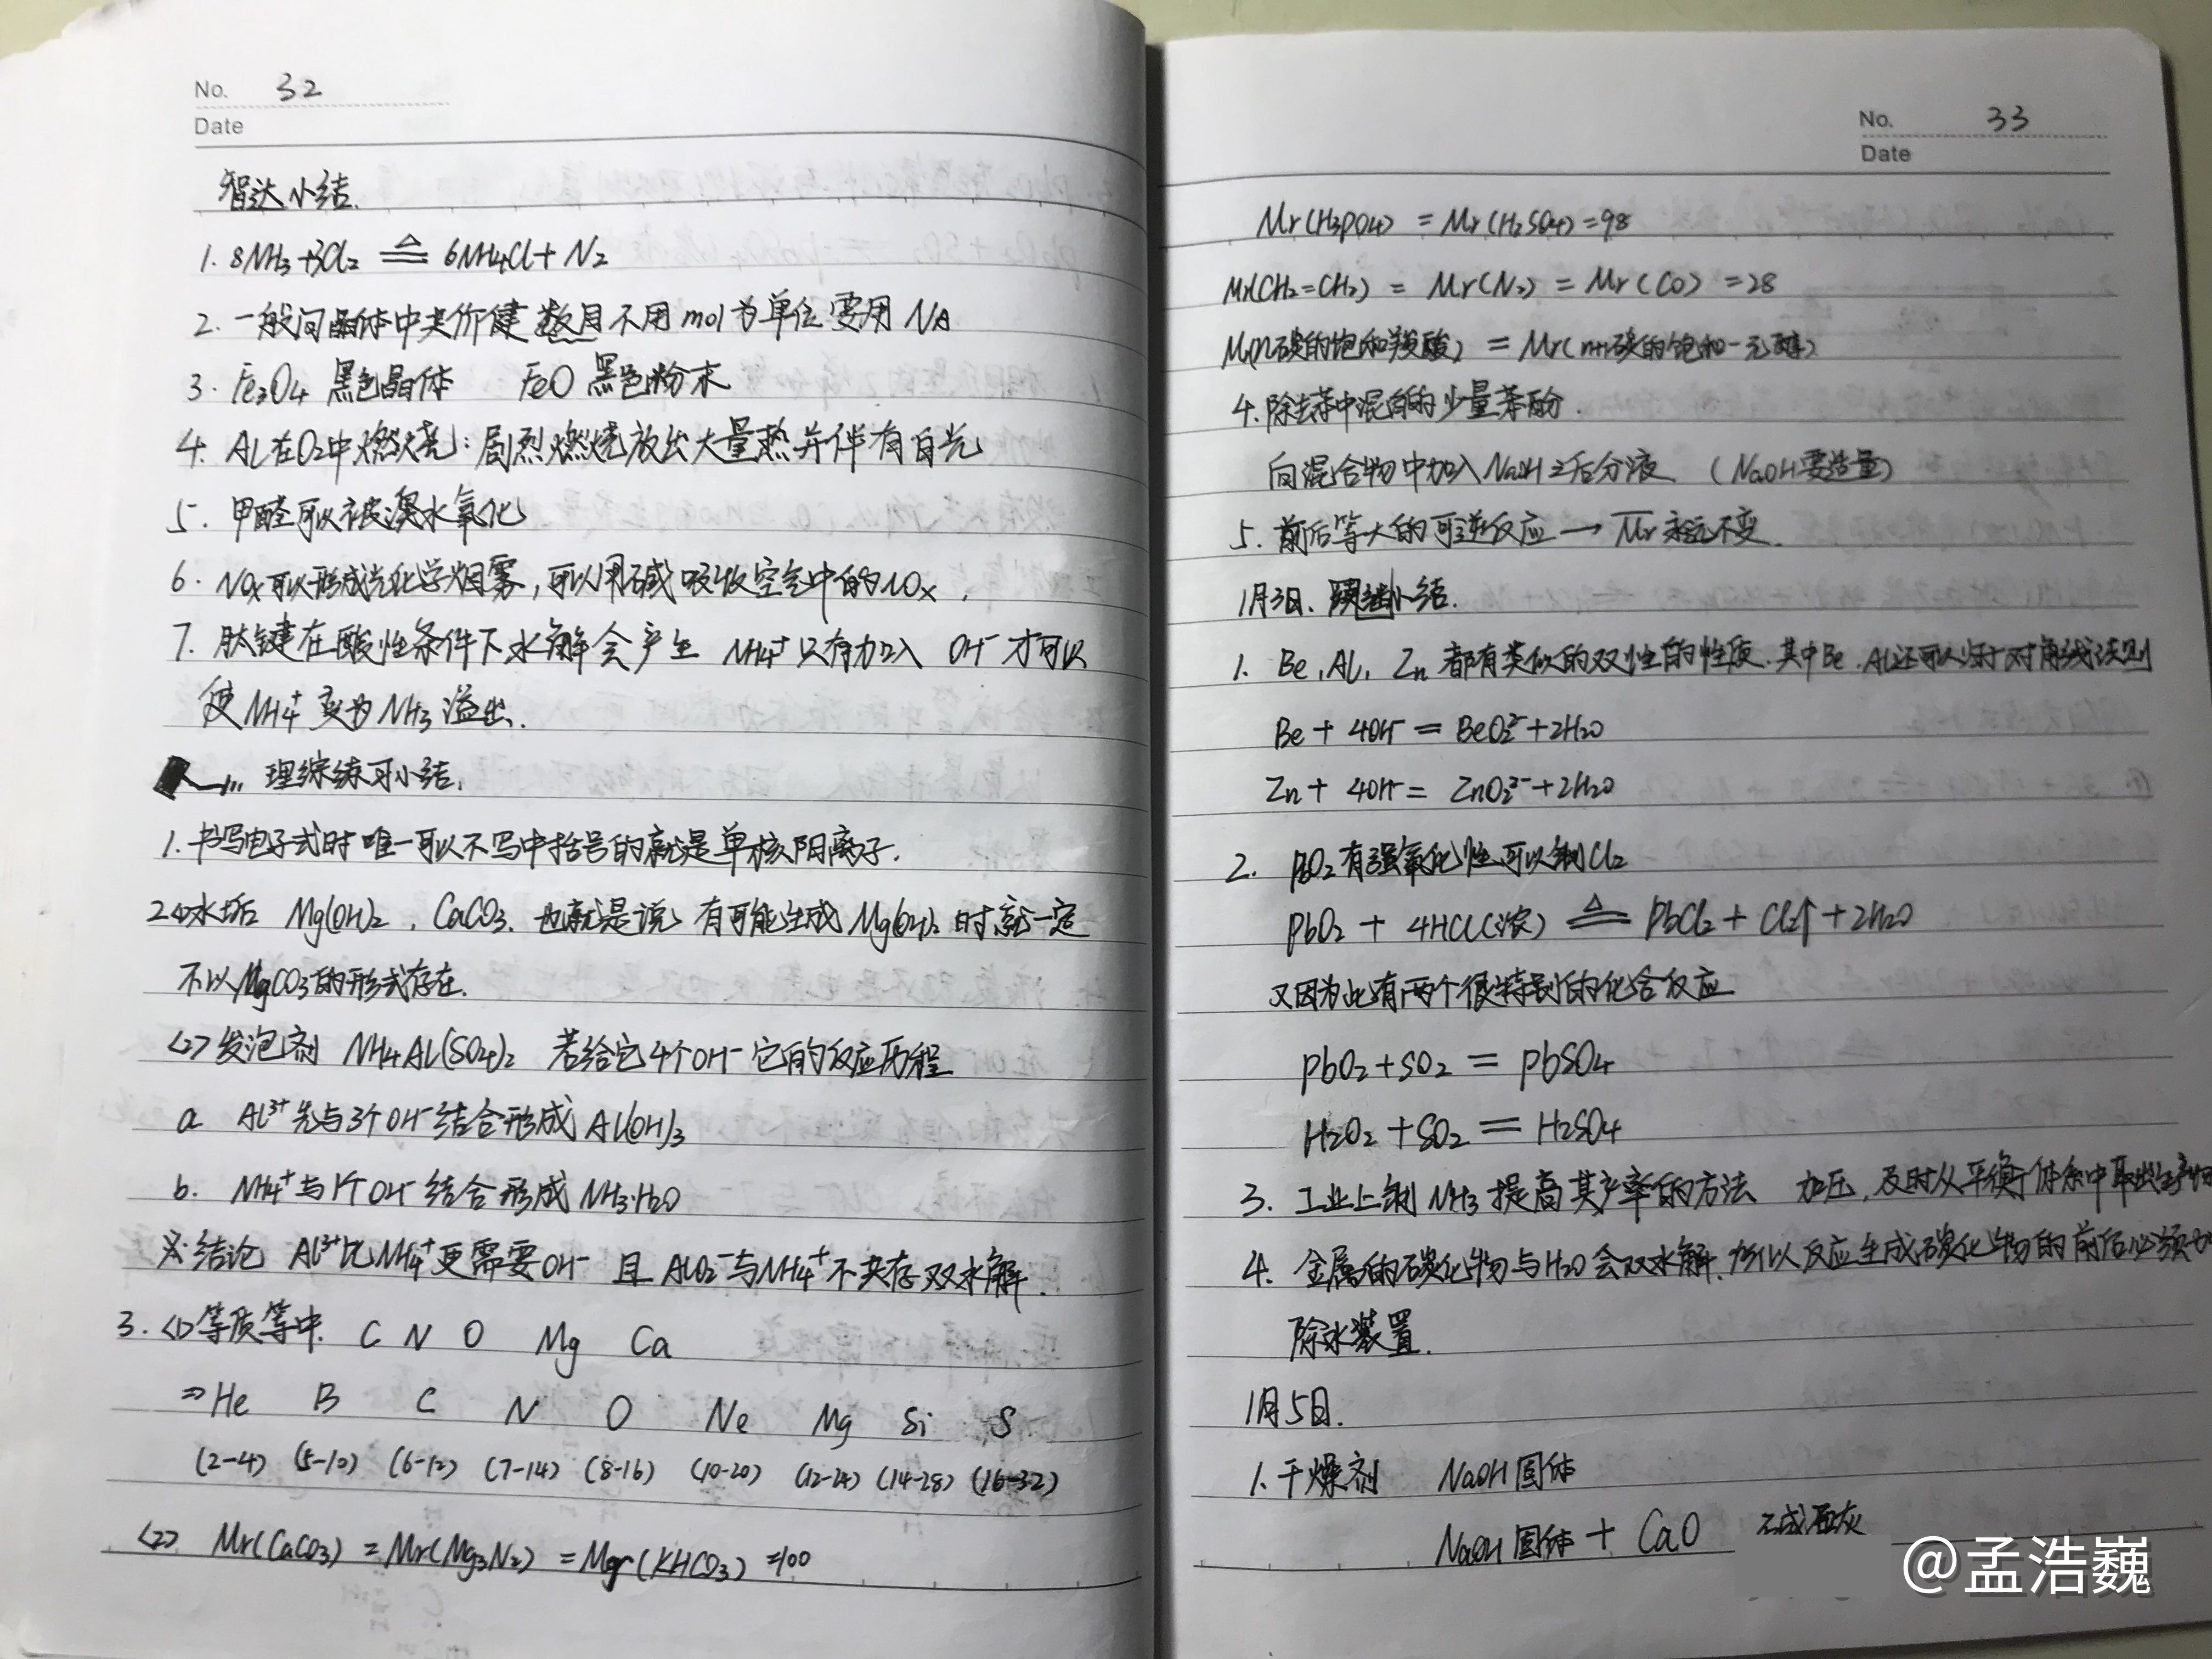 No. 32
Date
智达小结.
1. 8NH₃+3Cl₂ ≜ 6NH₄Cl+N₂
2. 一般问晶体中共价键数目不用mol为单位要用NA
3. Fe₃O₄ 黑色晶体 FeO 黑色粉末
4. AL在O₂中燃烧:剧烈燃烧放出大量热并伴有白光
5. 甲醛可以被溴水氧化
6. NOx可以形成光化学烟雾,可以用碱吸收空气中的NOx.
7. 肽键在酸性条件下水解会产生 NH₄⁺只有加入 OH⁻才可以
使NH₄⁺变为NH₃溢出.
理综练习小结.
1. 书写电子式时唯一可以不写中括号的就是单核阳离子.
2<1>水垢 Mg(OH)₂, CaCO₃. 也就是说 有可能生成Mg(OH)₂时,就一定
不以MgCO₃的形式存在.
<2>发泡剂 NH₄AL(SO₄)₂ 若给它4个OH⁻它的反应历程
a AL³⁺先与3个OH⁻结合形成AL(OH)₃
b. NH₄⁺与1个OH⁻结合形成NH₃·H₂O
※结论 AL³⁺比NH₄⁺更需要OH⁻ 且ALO₂⁻与NH₄⁺不共存双水解.
3. <1>等质等中. C N O Mg Ca
⇒He B C N O Ne Mg Si S
(2-4) (5-10) (6-12) (7-14) (8-16) (10-20) (12-24) (14-28) (16-32)
<2> Mr(CaCO₃)=Mr(Mg₃N₂)=Mr(KHCO₃)=100
No. 33
Date
Mr(H₃PO₄)=Mr(H₂SO₄)=98
Mr(CH₂=CH₂)=Mr(N₂)=Mr(CO)=28
Mr(n碳的饱和羧酸)=Mr(n+1碳的饱和一元醇)
4. 除去苯中混有的少量苯酚.
向混合物中加入NaOH之后分液.(NaOH要适量)
5. 前后等大的可逆反应→M̄r永远不变.
1月3日. 小结.
1. Be, AL, Zn都有类似的双性的性质.其中Be.AL还可以归于对角线法则
Be+4OH⁻=BeO₂²⁻+2H₂O
Zn+4OH⁻=ZnO₂²⁻+2H₂O
2. PbO₂有强氧化性可以制Cl₂
PbO₂+4HCl(浓) ≜ PbCl₂+Cl₂↑+2H₂O
又因为此有两个很特别的化合反应
PbO₂+SO₂=PbSO₄
H₂O₂+SO₂=H₂SO₄
3. 工业上制NH₃提高其产率的方法 加压,及时从平衡体系中取出
4. 金属的碳化物与H₂O会双水解.所以反应生成碳化物的前后必须
除水装置.
1月5日.
1. 干燥剂 NaOH固体
NaOH固体+CaO 碱石灰
@孟浩巍